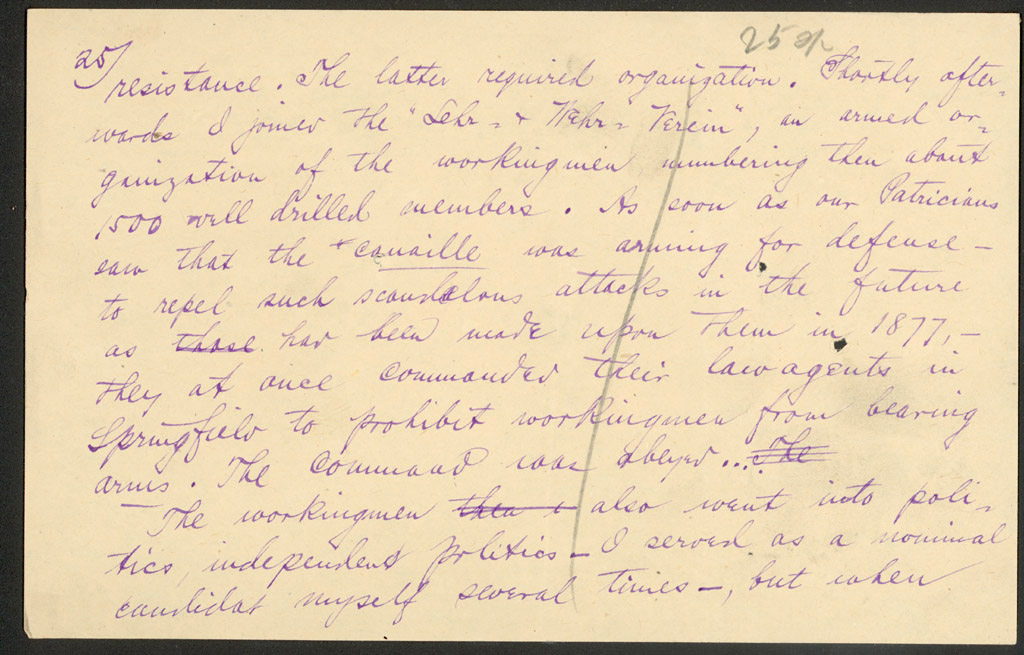 25/
resistance. The latter required organization. Shortly after-
wards I joined the "Lehr- & Wehr-Verein", an armed or-
ganization of the workingmen numbering then about
1500 well drilled members. As soon as our Patricians
saw that the canaille was arming for defense —
to repel such scandalous attacks in the future
as those had been made upon them in 1877, —
they at once commanded their law agents in
Springfield to prohibit workingmen from bearing
arms. The command was obeyed... The
The workingmen then also went into poli-
tics, independent politics — I served as a nominal
candidat myself several times —, but when